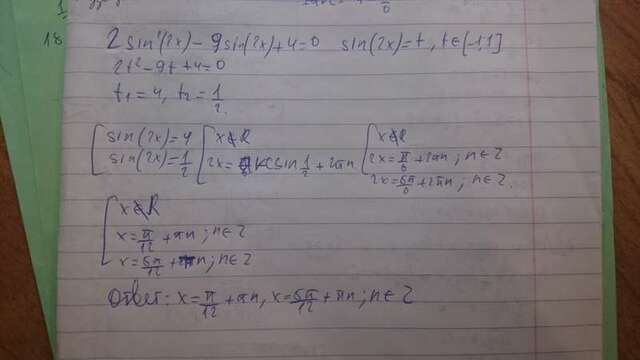 18. 2sin²(2x) - 9sin(2x) + 4 = 0 sin(2x) = t, t ∈ [-1,1]
2t² - 9t + 4 = 0
t₁ = 4, t₂ = 1/2.
[ sin(2x) = 4 [ x ∉ R [ x ∉ R
sin(2x) = 1/2 2x = arcsin 1/2 + 2πn 2x = π/6 + 2πn; n ∈ Z
2x = 5π/6 + 2πn; n ∈ Z.
[ x ∉ R
x = π/12 + πn; n ∈ Z
x = 5π/12 + πn; n ∈ Z
Ответ: x = π/12 + πn, x = 5π/12 + πn; n ∈ Z